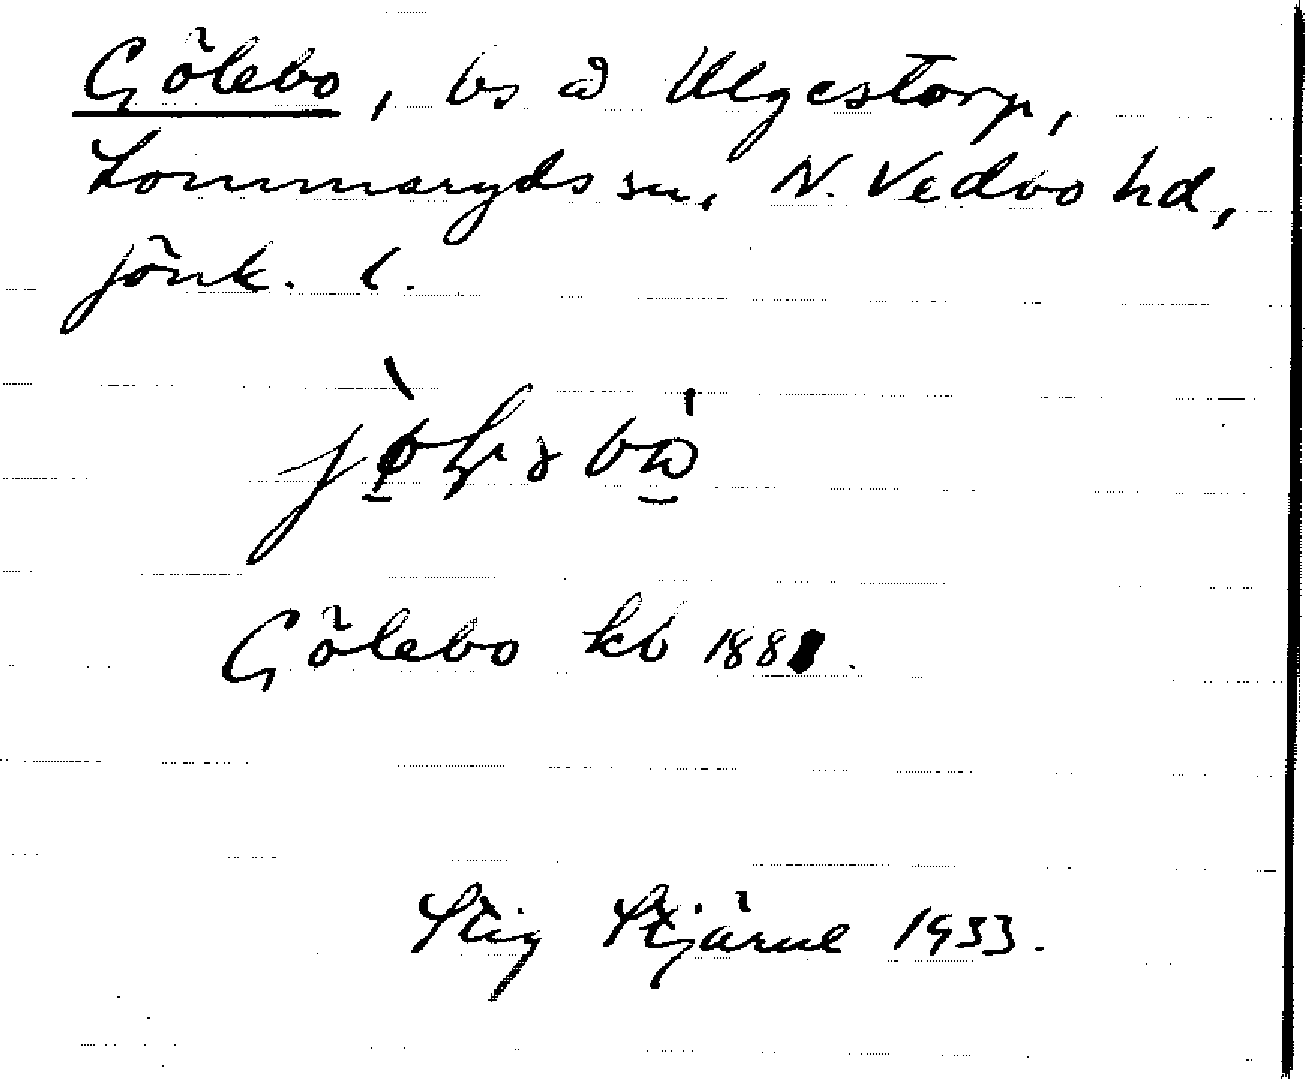 Gölebo, bs å Ulgestorp,
Lommaryds sn, N. Vedbo hd,
Jönk. l.
Gölebo kb 1881.
Stig Stjärne 1933.